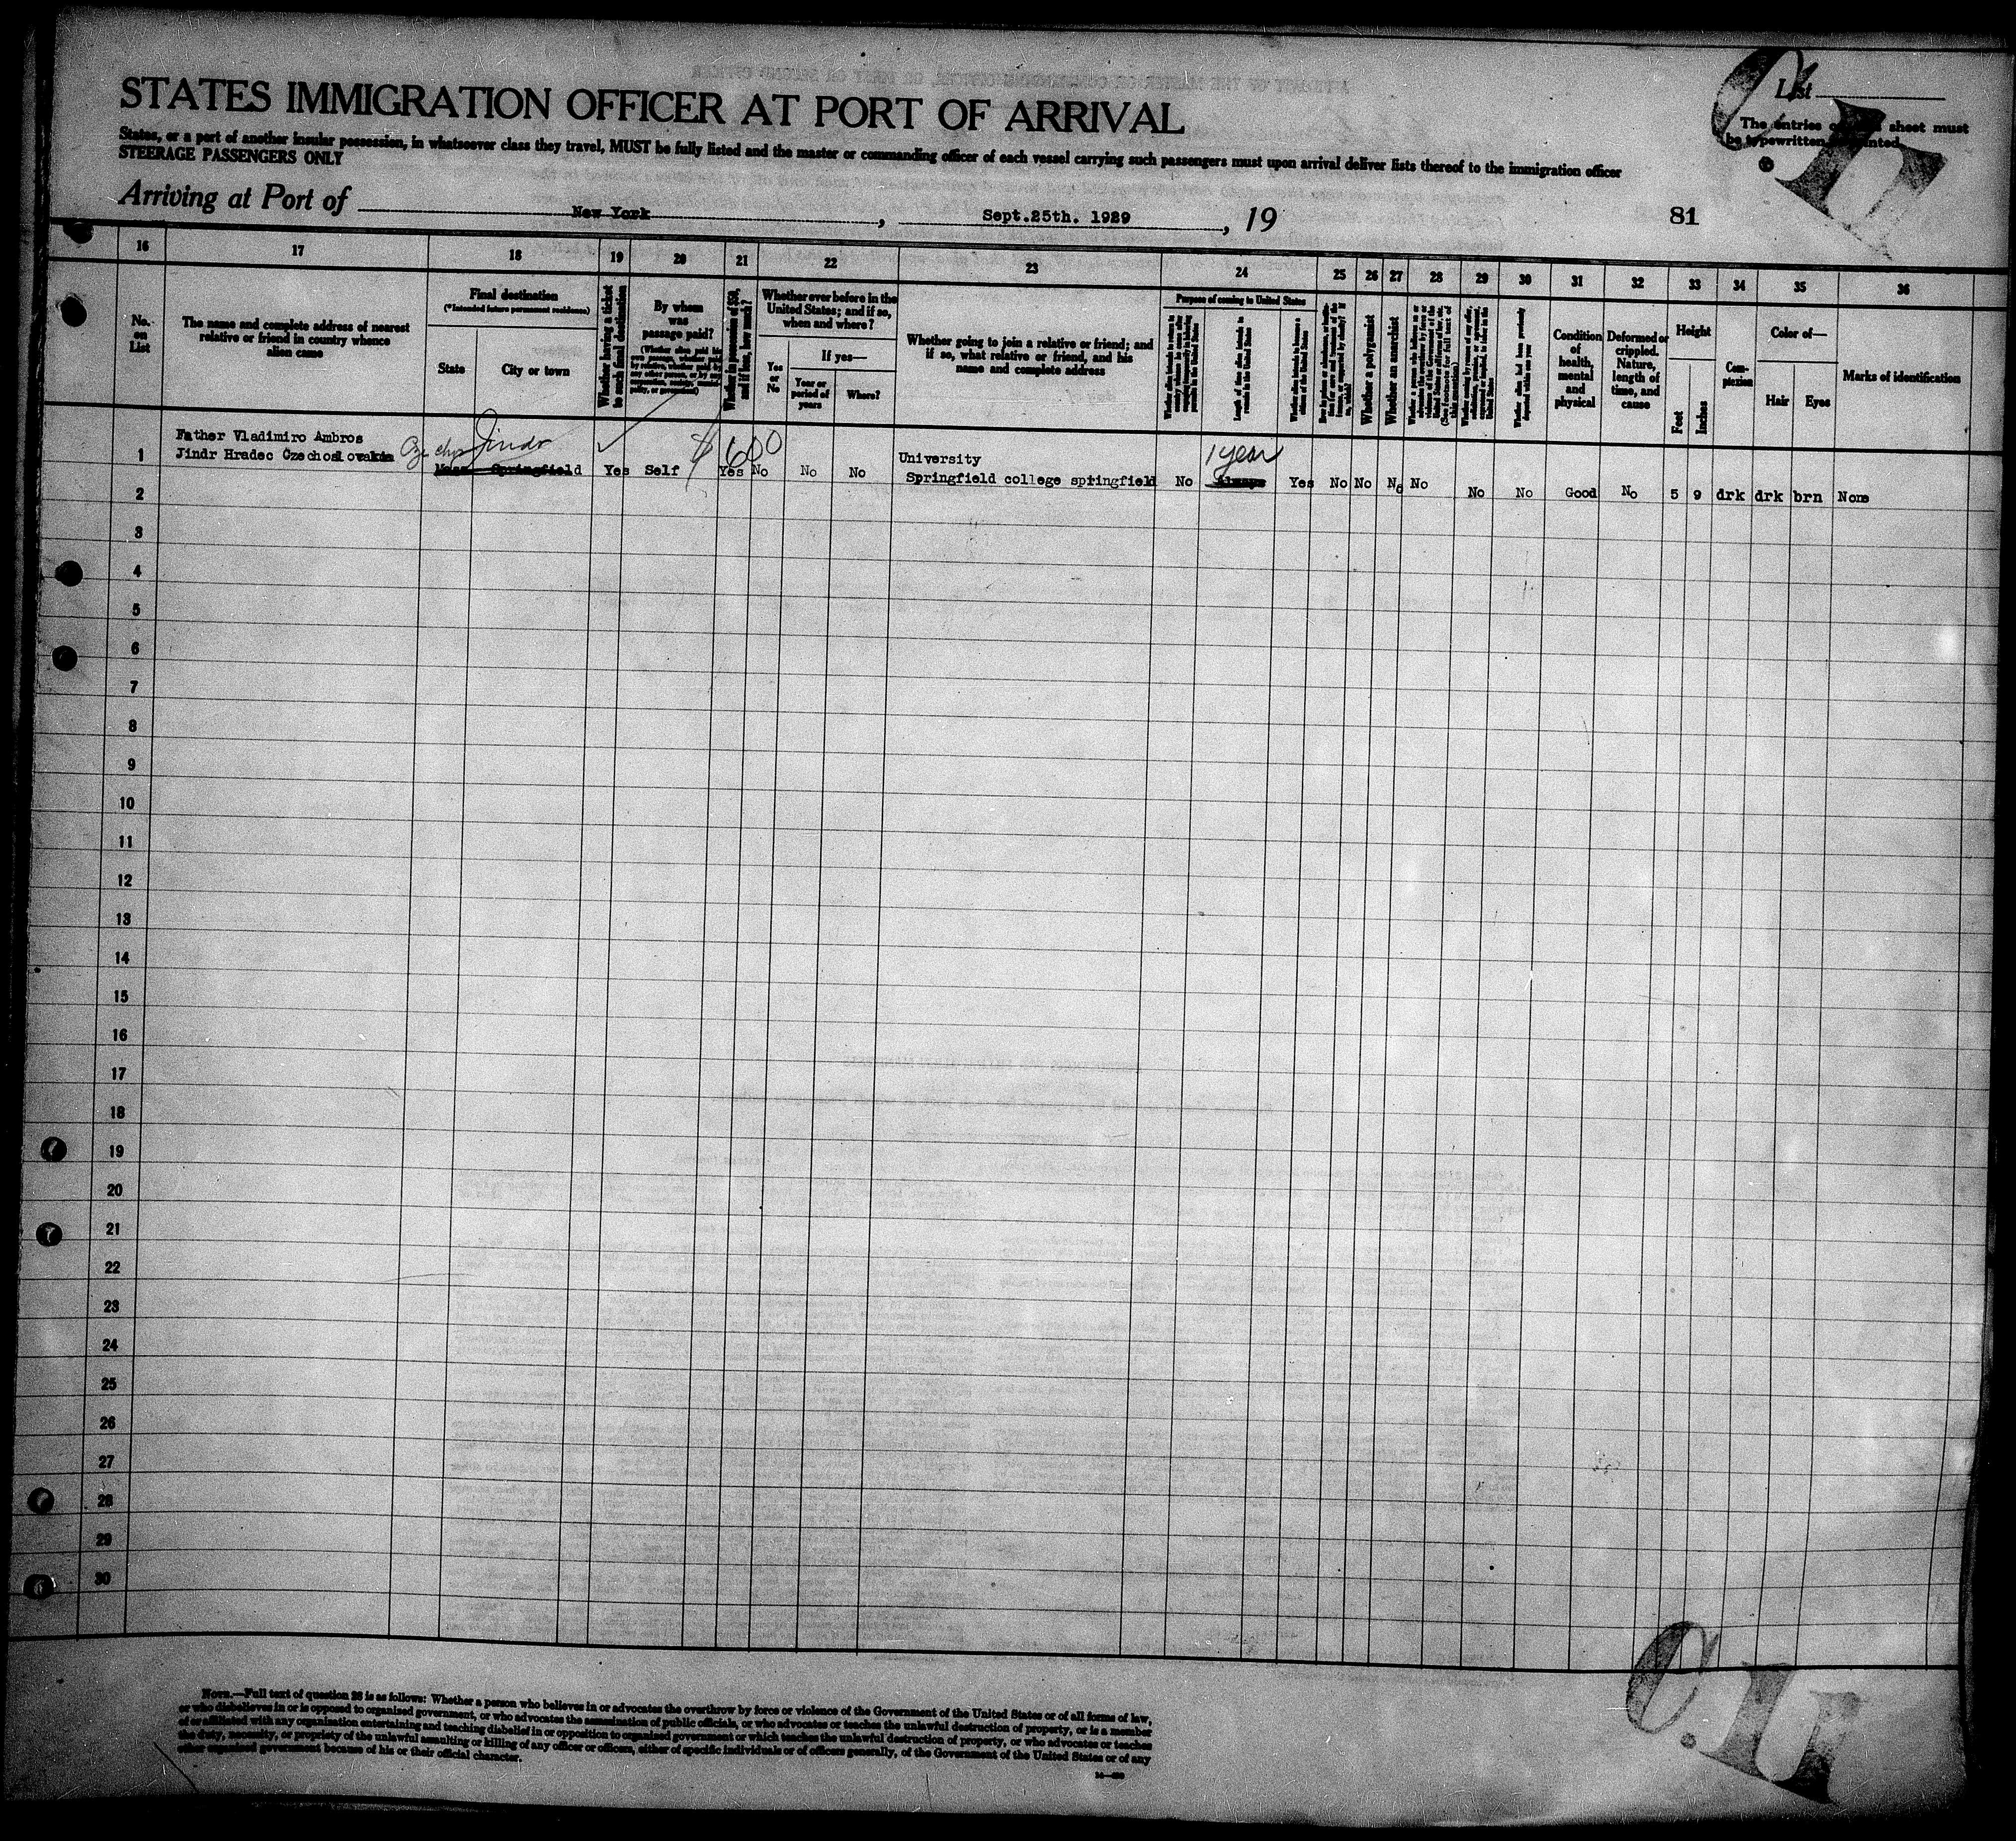 STATES IMMIGRATION OFFICER AT PORT OF ARRIVAL
List
The entries sheet must
be typewritten
States, or a port of another insular possession, in whatsoever class they travel, MUST be fully listed and the master or commanding officer of each vessel carrying such passengers must upon arrival deliver lists thereof to the immigration officer
STEERAGE PASSENGERS ONLY
Arriving at Port of New York, Sept.25th. 1929, 19
81
16 17 18 19 20 21 22 23 24 25 26 27 28 29 30 31 32 33 34 35 36
No. on List
The name and complete address of nearest relative or friend in country whence alien came
Final destination
(*Intended future permanent residence)
State
City or town
Whether having a ticket to such final destination
By whom was passage paid?
Whether in possession of $50, and if less, how much?
Whether ever before in the United States; and if so, when and where?
Yes or No
If yes—
Year or period of years
Where?
Whether going to join a relative or friend; and if so, what relative or friend, and his name and complete address
Purpose of coming to United States
Length of time alien intends to remain in the United States
Whether alien intends to become a citizen of the United States
Whether a polygamist
Whether an anarchist
Condition of health, mental and physical
Deformed or crippled. Nature, length of time, and cause
Height
Feet
Inches
Complexion
Color of—
Hair
Eyes
Marks of identification
1
Father Vladimiro Ambros
Jindr Hradec Czechoslovakia
Jindr
Springfield
Yes
Self
$600
Yes
No
No
No
University
Springfield college springfield
No
1 year
Always
Yes
No
No
No
No
No
No
Good
No
5
9
drk
drk
brn
None
2
3
4
5
6
7
8
9
10
11
12
13
14
15
16
17
18
19
20
21
22
23
24
25
26
27
28
29
30
NOTE.—Full text of question 28 is as follows: Whether a person who believes in or advocates the overthrow by force or violence of the Government of the United States or of all forms of law,
or who disbelieves in or is opposed to organized government, or who advocates the assassination of public officials, or who advocates or teaches the unlawful destruction of property, or is a member
of or affiliated with any organization entertaining and teaching disbelief in or opposition to organized government or which teaches the unlawful destruction of property, or who advocates or teaches
the duty, necessity, or propriety of the unlawful assaulting or killing of any officer or officers, either of specific individuals or of officers generally, of the Government of the United States or of any
other organized government because of his or their official character.